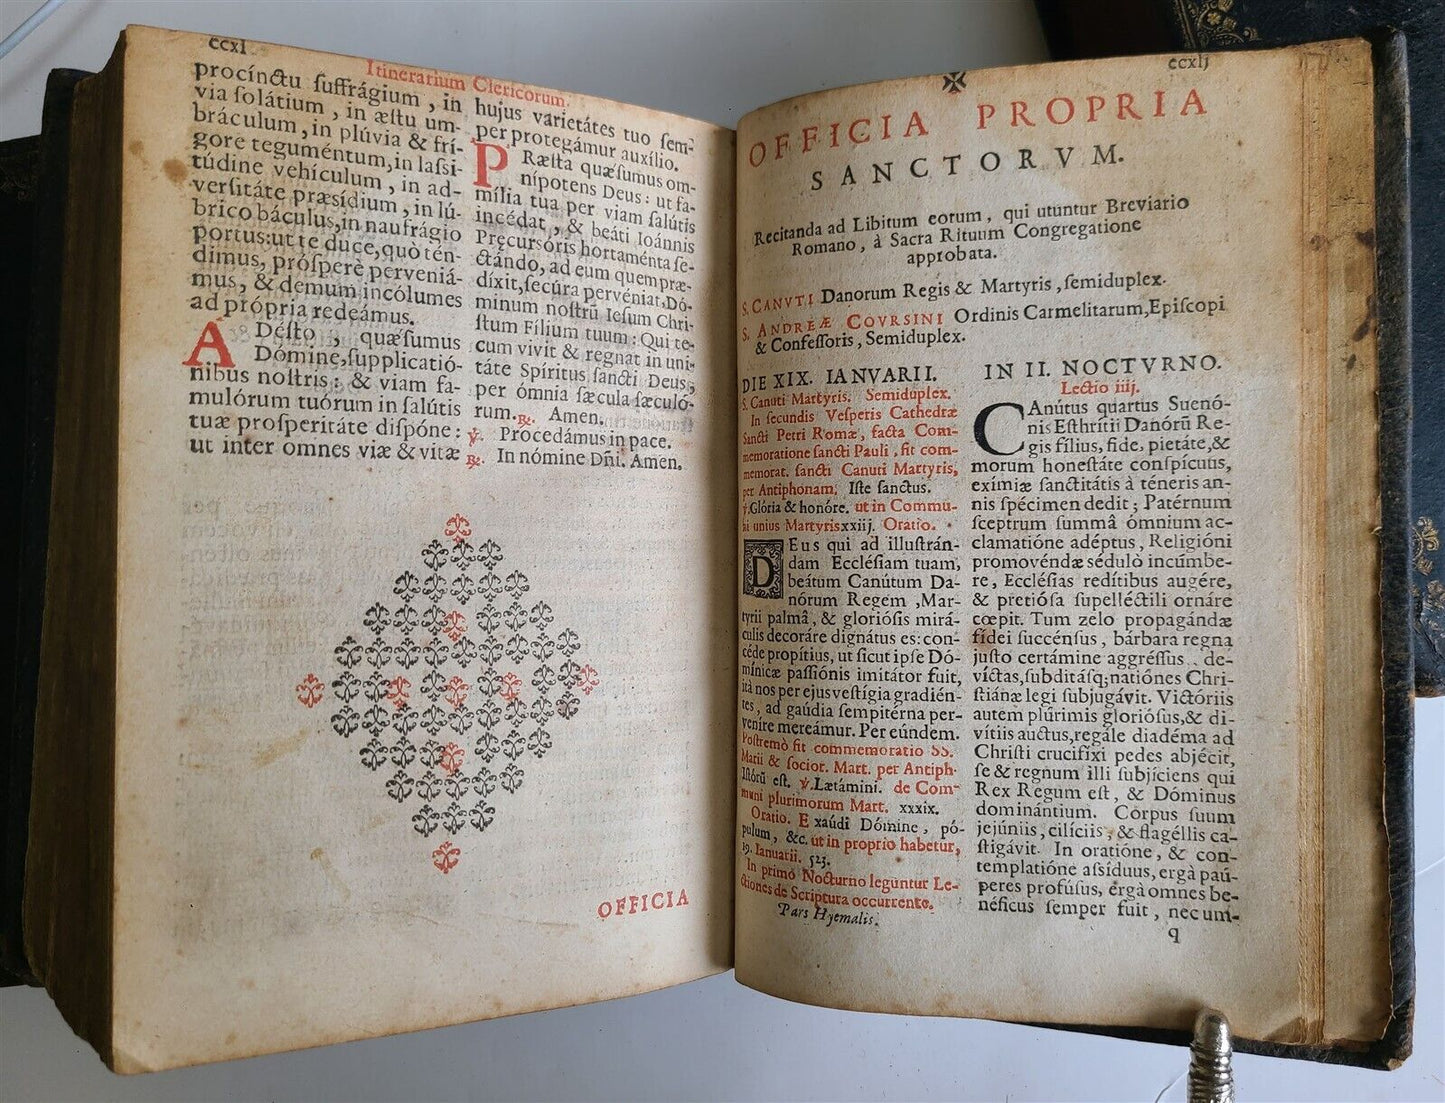 ccxl
Itinerarium Clericorum.
procínctu ſuffrágium, in
via ſolátium, in æſtu um-
bráculum, in plúvia & frí-
gore teguméntum, in laſsi-
túdine vehículum, in ad-
verſitáte præsídium, in lú-
brico báculus, in naufrágio
portus: ut te duce, quò tén-
dimus, próſperè perveniá-
mus, & demum incólumes
ad própria redeámus.
ADéſto, quæſumus
Dómine, ſupplicatió-
nibus noſtris: & viam fa-
mulórum tuórum in ſalútis
tuæ proſperitáte diſpóne:
ut inter omnes viæ & vitæ
hujus varietátes tuo ſem-
per protegámur auxílio.
PRæſta quæſumus om-
nípotens Deus: ut fa-
mília tua per viam ſalútis
incédat, & beáti Ioánnis
Pręcurſóris hortaménta ſe-
ctándo, ad eum quem præ-
díxit, ſecúra pervéniat, Dó-
minum noſtrũ Ieſum Chri-
ſtum Fílium tuum: Qui te-
cum vivit & regnat in uni-
táte Spíritus ſancti Deus,
per ómnia ſæcula ſæculó-
rum. ℞. Amen.
℣. Procedámus in pace.
℞. In nómine Dñi. Amen.
OFFICIA
ccxlj
✠
OFFICIA PROPRIA
SANCTORVM.
Recitanda ad Libitum eorum, qui utuntur Breviario
Romano, à Sacra Rituum Congregatione
approbata.
S. CANVTI Danorum Regis & Martyris, ſemiduplex.
S. ANDREÆ COVRSINI Ordinis Carmelitarum, Epiſcopi
& Confeſſoris, Semiduplex.
DIE XIX. IANVARII.
S. Canuti Martyris. Semiduplex.
In ſecundis Veſperis Cathedræ
Sancti Petri Romæ, facta Com-
memoratione ſancti Pauli, fit com-
memorat. ſancti Canuti Martyris,
per Antiphonam, Iſte ſanctus.
℣. Glória & honóre. ut in Commu-
ni unius Martyris xxiij. Oratio.
DEus qui ad illuſtrán-
dam Eccléſiam tuam,
beátum Canútum Da-
nórum Regem, Már-
tyrii palmâ, & glorióſis mirá-
culis decoráre dignátus es: con-
céde propítius, ut ſicut ipſe Dó-
mínicæ paſſiónis imitátor fuit,
ità nos per ejus veſtígia gradién-
tes, ad gaúdia ſempitérna per-
veníre mereámur. Per eúndem.
Poſtremò fit commemoratio SS.
Marii & ſocior. Mart. per Antiph.
Iſtórũ eſt. ℣. Lætámini. de Com-
muni plurimorum Mart. xxxix.
Oratio. Exaúdi Dómine, pó-
pulum, &c. ut in proprio habetur,
19. Ianuarii. 523.
In primo Nocturno leguntur Le-
ctiones de Scriptura occurrente.
Pars Hyemalis.
IN II. NOCTVRNO.
Lectio iiij.
CAnútus quartus Suenó-
nis Eſthrítii Danórũ Re-
gis fílius, fide, pietáte, &
morum honeſtáte conſpícuus,
exímiæ ſanctitátis à téneris an-
nis ſpécimen dedit; Patérnum
ſceptrum ſummâ ómnium ac-
clamatióne adéptus, Religióni
promovéndæ sédulò incúmbe-
re, Eccléſias redítibus augére,
& pretióſa ſupelléctili ornáre
cœpit. Tum zelo propagándæ
fídei ſuccénſus, bárbara regna
juſto certámine aggréſſus, de-
víctas, ſubditáſq; natiónes Chri-
ſtiánæ legi ſubjugávit. Victóriis
autem plúrimis glorióſus, & di-
vítiis auctus, regále diadéma ad
Chriſti crucifíxi pedes abjécit,
ſe & regnum illi ſubjíciens qui
Rex Regum eſt, & Dóminus
dominántium. Corpus ſuum
jejúniis, cilíciis, & flagéllis ca-
ſtigávit. In oratióne, & con-
templatióne aſsíduus, ergà paú-
peres profúſus, ergà omnes be-
néficus ſemper fuit, nec um-
q